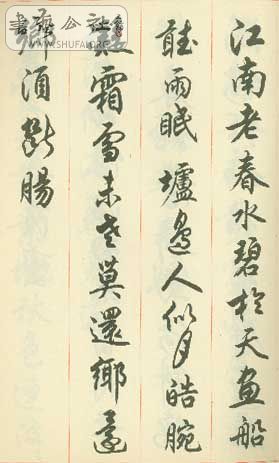 江南老春水碧於天畫船
聽雨眠壚邊人似月皓腕
霜雪未老莫還鄉還
鄉須斷腸
書法公社